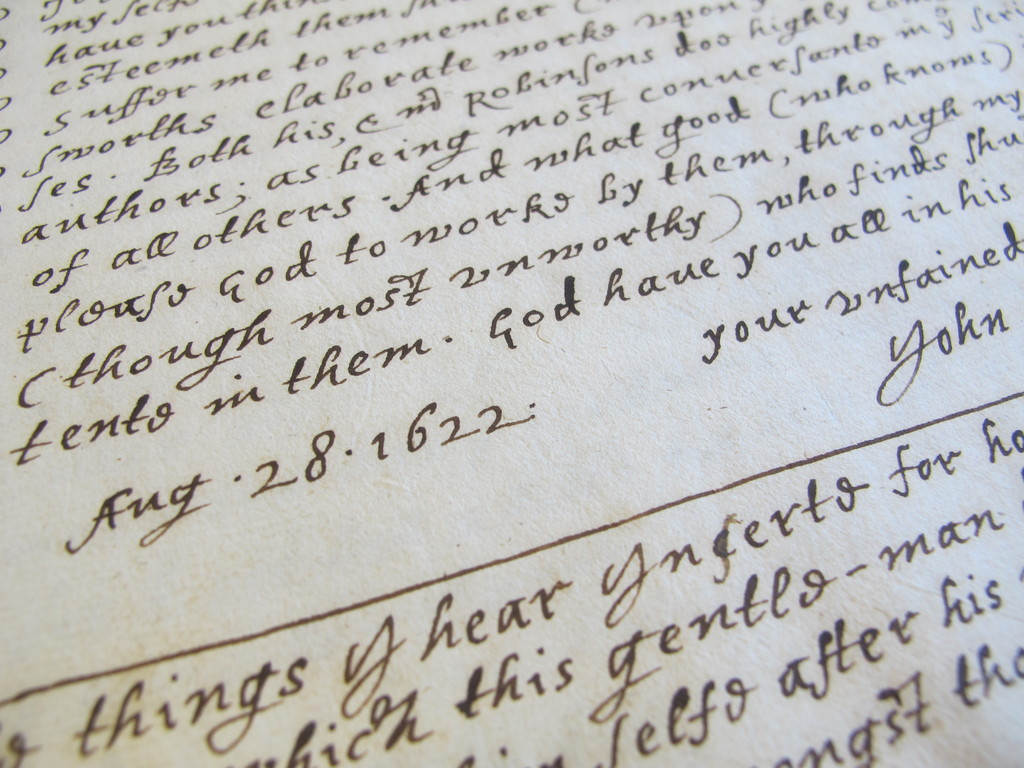 my self
have you thin
esteemeth them
suffer me to remember
sworths elaborate works upon
ses. Both his, & mr Robinsons doo highly com
authors; as being most conversante in yͤ scri
of all others. And what good (who knows)
please God to worke by them, through my
(though most vnworthy) who finds shu
tente in them. God have you all in his
your vnfained
Aug. 28. 1622.
John
things I hear Inserte for ho
which this gentle-man
selfe after his
ongst